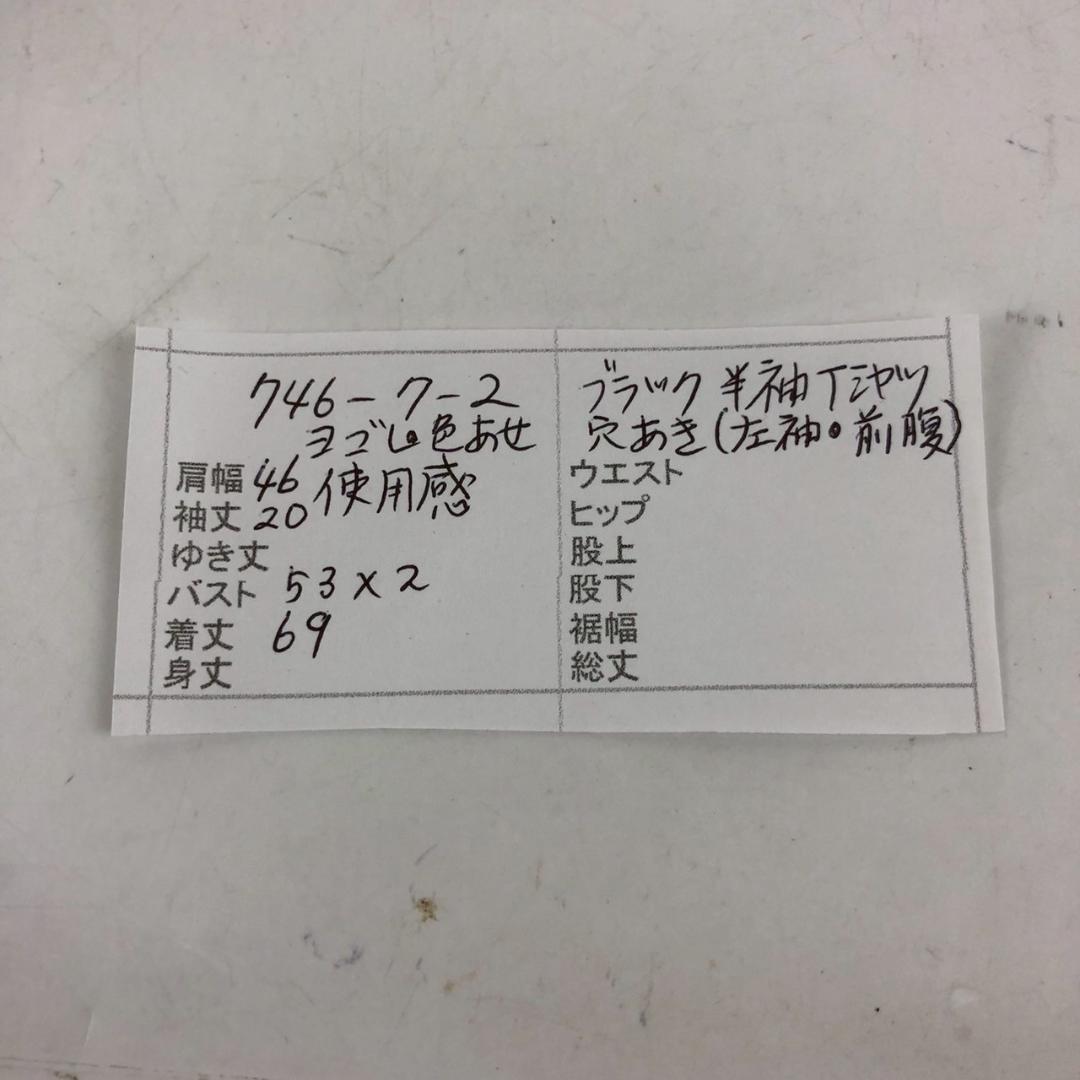 746-7-2
ヨゴレ・色あせ
肩幅 46 使用感
袖丈 20
ゆき丈
バスト 53×2
着丈 69
身丈
ブラック 半袖Tシャツ
穴あき(左袖・前腹)
ウエスト
ヒップ
股上
股下
裾幅
総丈